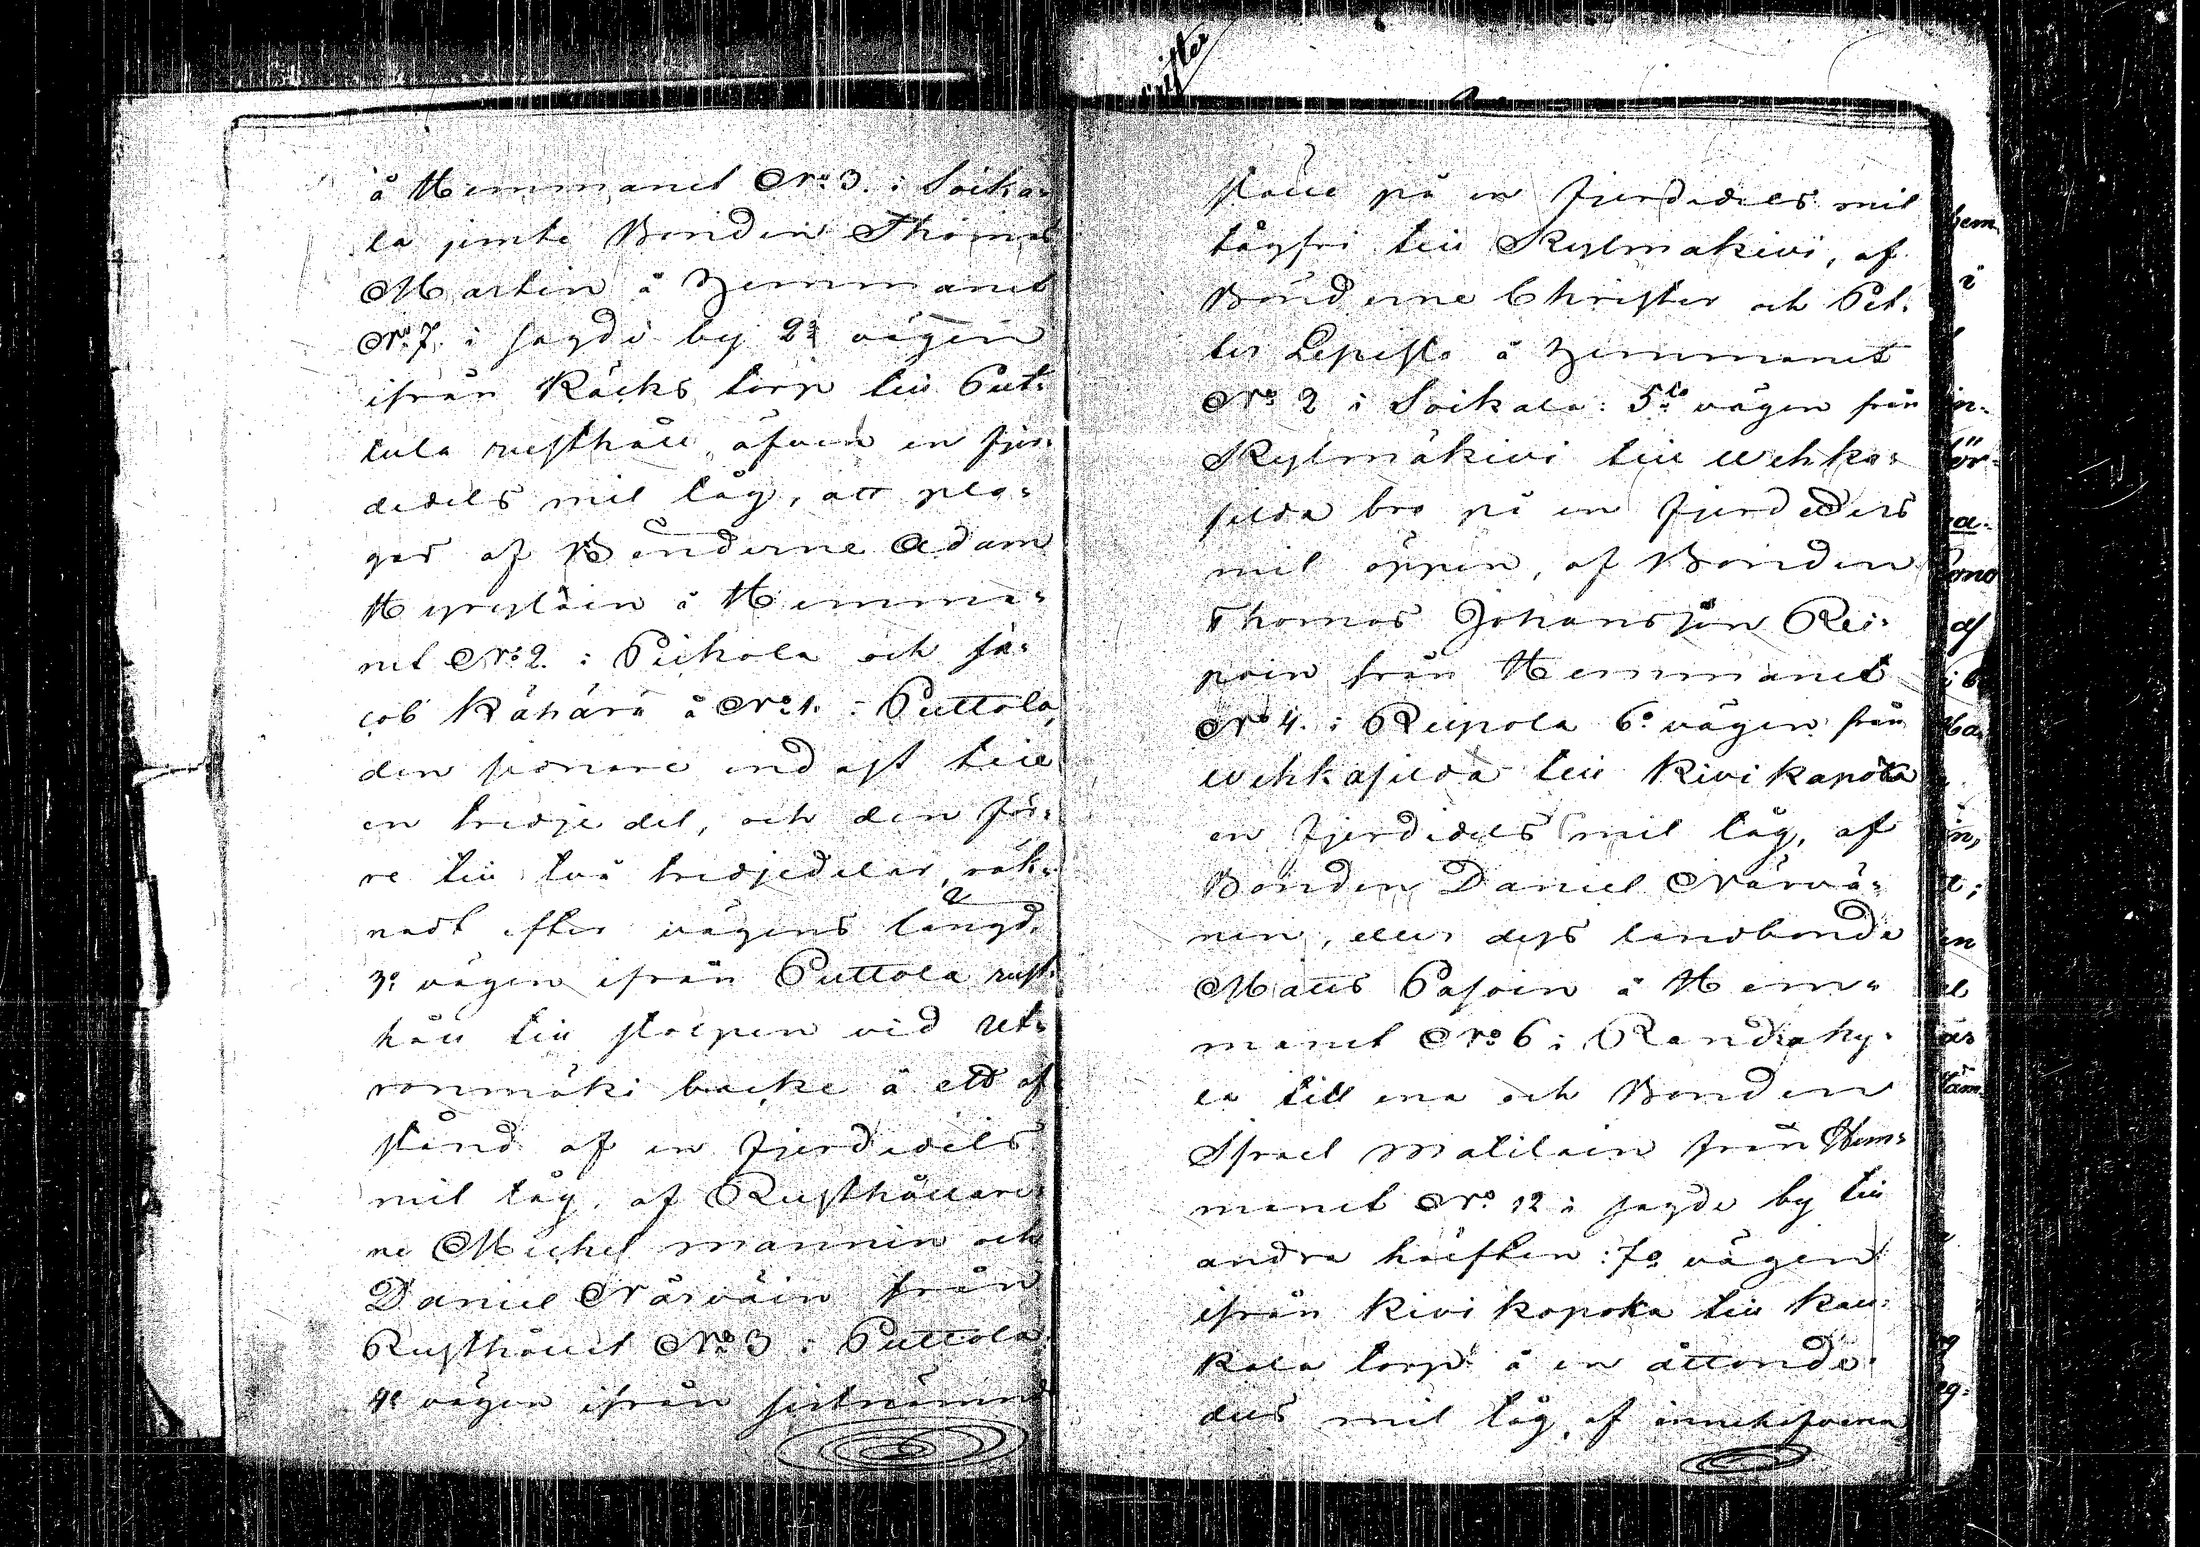 å Hemmanet No 3. i Soika-
la jemte Bonden Thomas
Martin å Hemmanet
No 7. i sagde by 2a vägen
ifrån Räcks torp till Put-
tula rusthåll äfven en fjer-
dedels mil låg, att plo-
gas af Bönderne Adam
Hyryläin å Hemma-
net No 2. i Pickola och Ja-
cob Kähärä å No 1. i Puttola,
den sednare endast till
en tredjedel, och den för-
re till två tredjedelar, räk-
nadt efter vägens längd.
3o vägen ifrån Puttola rust-
håll till stolpen vid
ronmäki backe å ett af
stånd af en fjerdedels
mil låg, af Rusthållare-
ne Michel Mannin och
Daniel Närväin från
Rusthållet No 3 i Puttola.
4o vägen ifrån sistnämnd
stolpe på en fjerdedels mil
lågfri till Kylmäkivi, af
Bönderne Christer och Pet-
ter Lepistö å Hemmanet
No 2 i Soikala: 5to vägen från
Kylmäkivi till Wehka-
silda bro på en fjerdedels
mil öppen, af Bonden
Thomas Johansson Rei-
poin från Hemmanet
No 4. i Reipola 6o vägen från
Wehkasilda till Kivikapoka
en fjerdedels mil låg, af
Bonden Daniel Närwä-
nen, eller dess landbonde
Matts Pasoin å Hem-
manet No 6 i Randaky-
la till ena och Bonden
Israel Matilain från Hem-
manet No 12 i sagde by till
andra hälften: 7o vägen
ifrån Kivikopoka till Kau-
kala torp å en åttonde-
dels mil låg, af innehafvarne